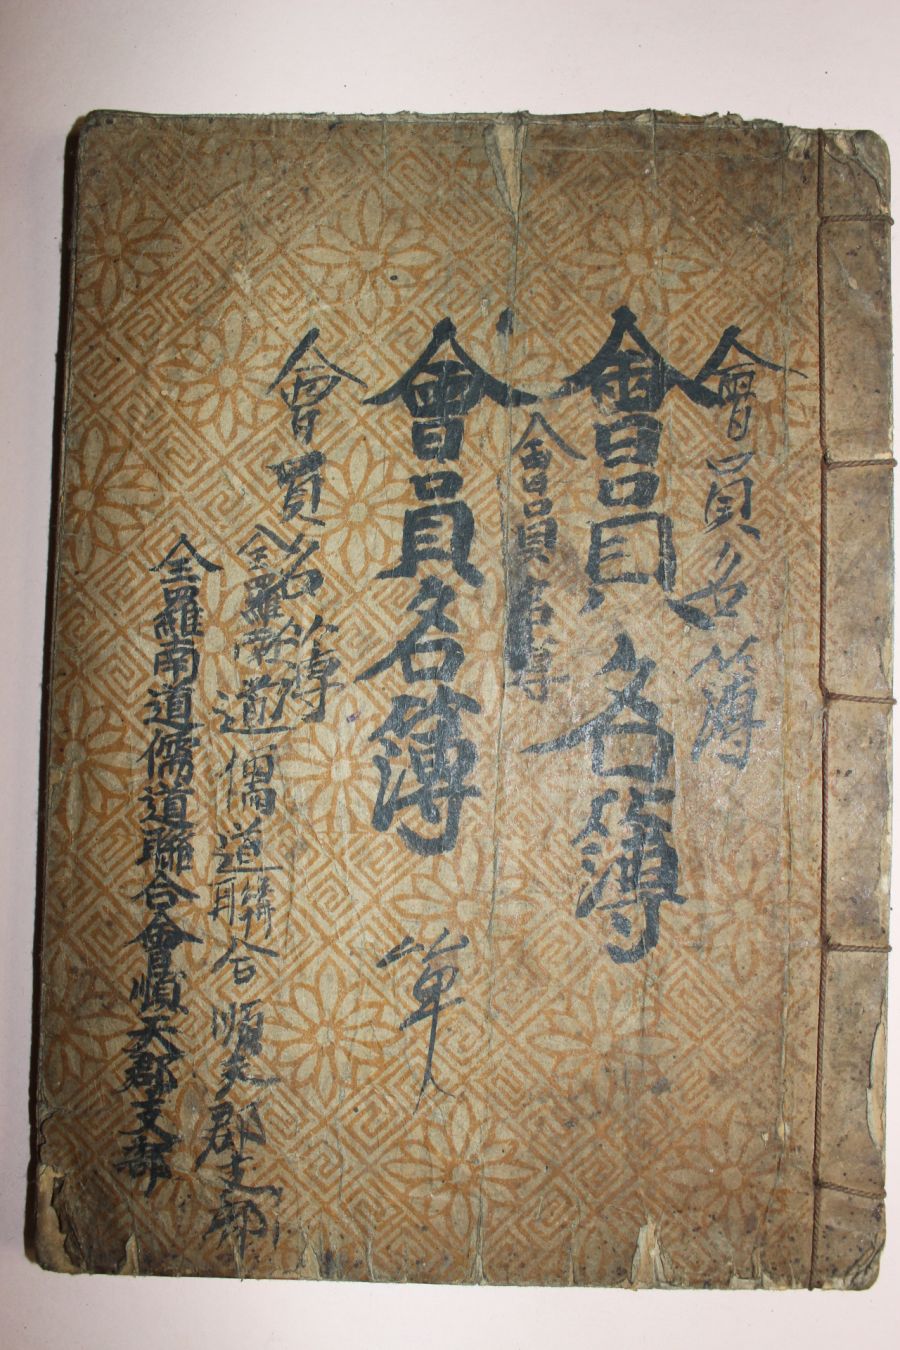 會員名簿
會員名簿
會員名簿
會員名簿
會員名簿
全羅南道儒道聯合順天郡支部
全羅南道儒道聯合會順天郡支部